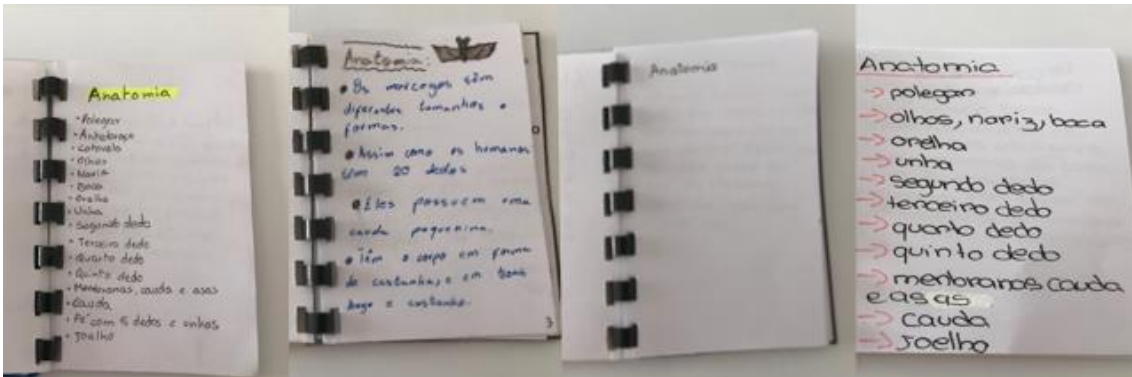 Anatomia
• Polegar
• Antebraço
• Cotovelo
• Olhos
• Nariz
• Boca
• Orelha
• Unha
• Segundo dedo
• Terceiro dedo
• Quarto dedo
• Quinto dedo
• Membranas, cauda e asas
• Cauda
• Pé com 5 dedos e unhas
• Joelho
Anatomia:
• Os morcegos têm
diferentes tamanhos e
formas.
• Assim como os humanos
têm 20 dedos
• Eles possuem uma
cauda pequenina.
• Têm o corpo em forma
de castanha, e em
e castanho.
3
Anatomia
Anatomia
→ polegar
→ olhos, nariz, boca
→ orelha
→ unha
→ segundo dedo
→ terceiro dedo
→ quarto dedo
→ quinto dedo
→ membranas cauda
e asas
→ cauda
→ Joelho